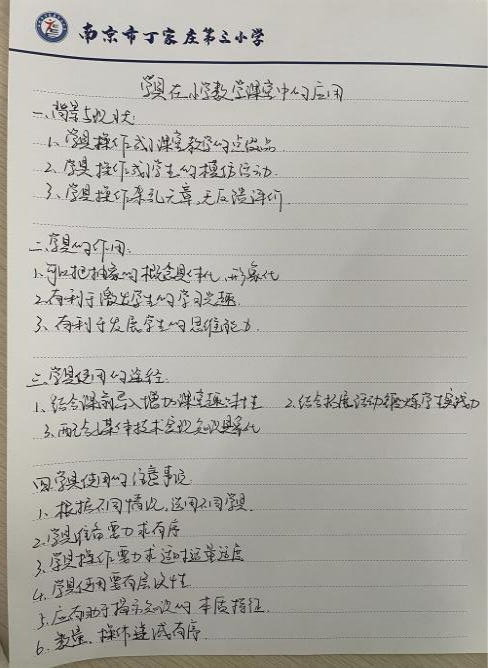 南京市丁家庄第三小学
学具在小学数学课堂中的应用
一、背景与现状:
1、学具操作成课堂教学的点缀品
2、学具操作成学生的模仿活动
3、学具操作杂乱无章,无反馈评价
二、学具的作用:
1、可以把抽象的概念具体化、形象化
2、有利于激发学生的学习兴趣.
3、有利于发展学生的思维能力.
三、学具使用的途径:
1、结合课前导入增加课堂趣味性 2、结合拓展活动锻炼学生实践力
3、配合媒体技术实现知识具象化
四、学具使用的注意事项
1、根据不同情况,选用不同学具.
2、学具准备要力求有序
3、学具操作要力求适时适量适度
4、学具使用要有层次性
5、应有助于揭示知识的本质特征.
6、数量、操作速成有序